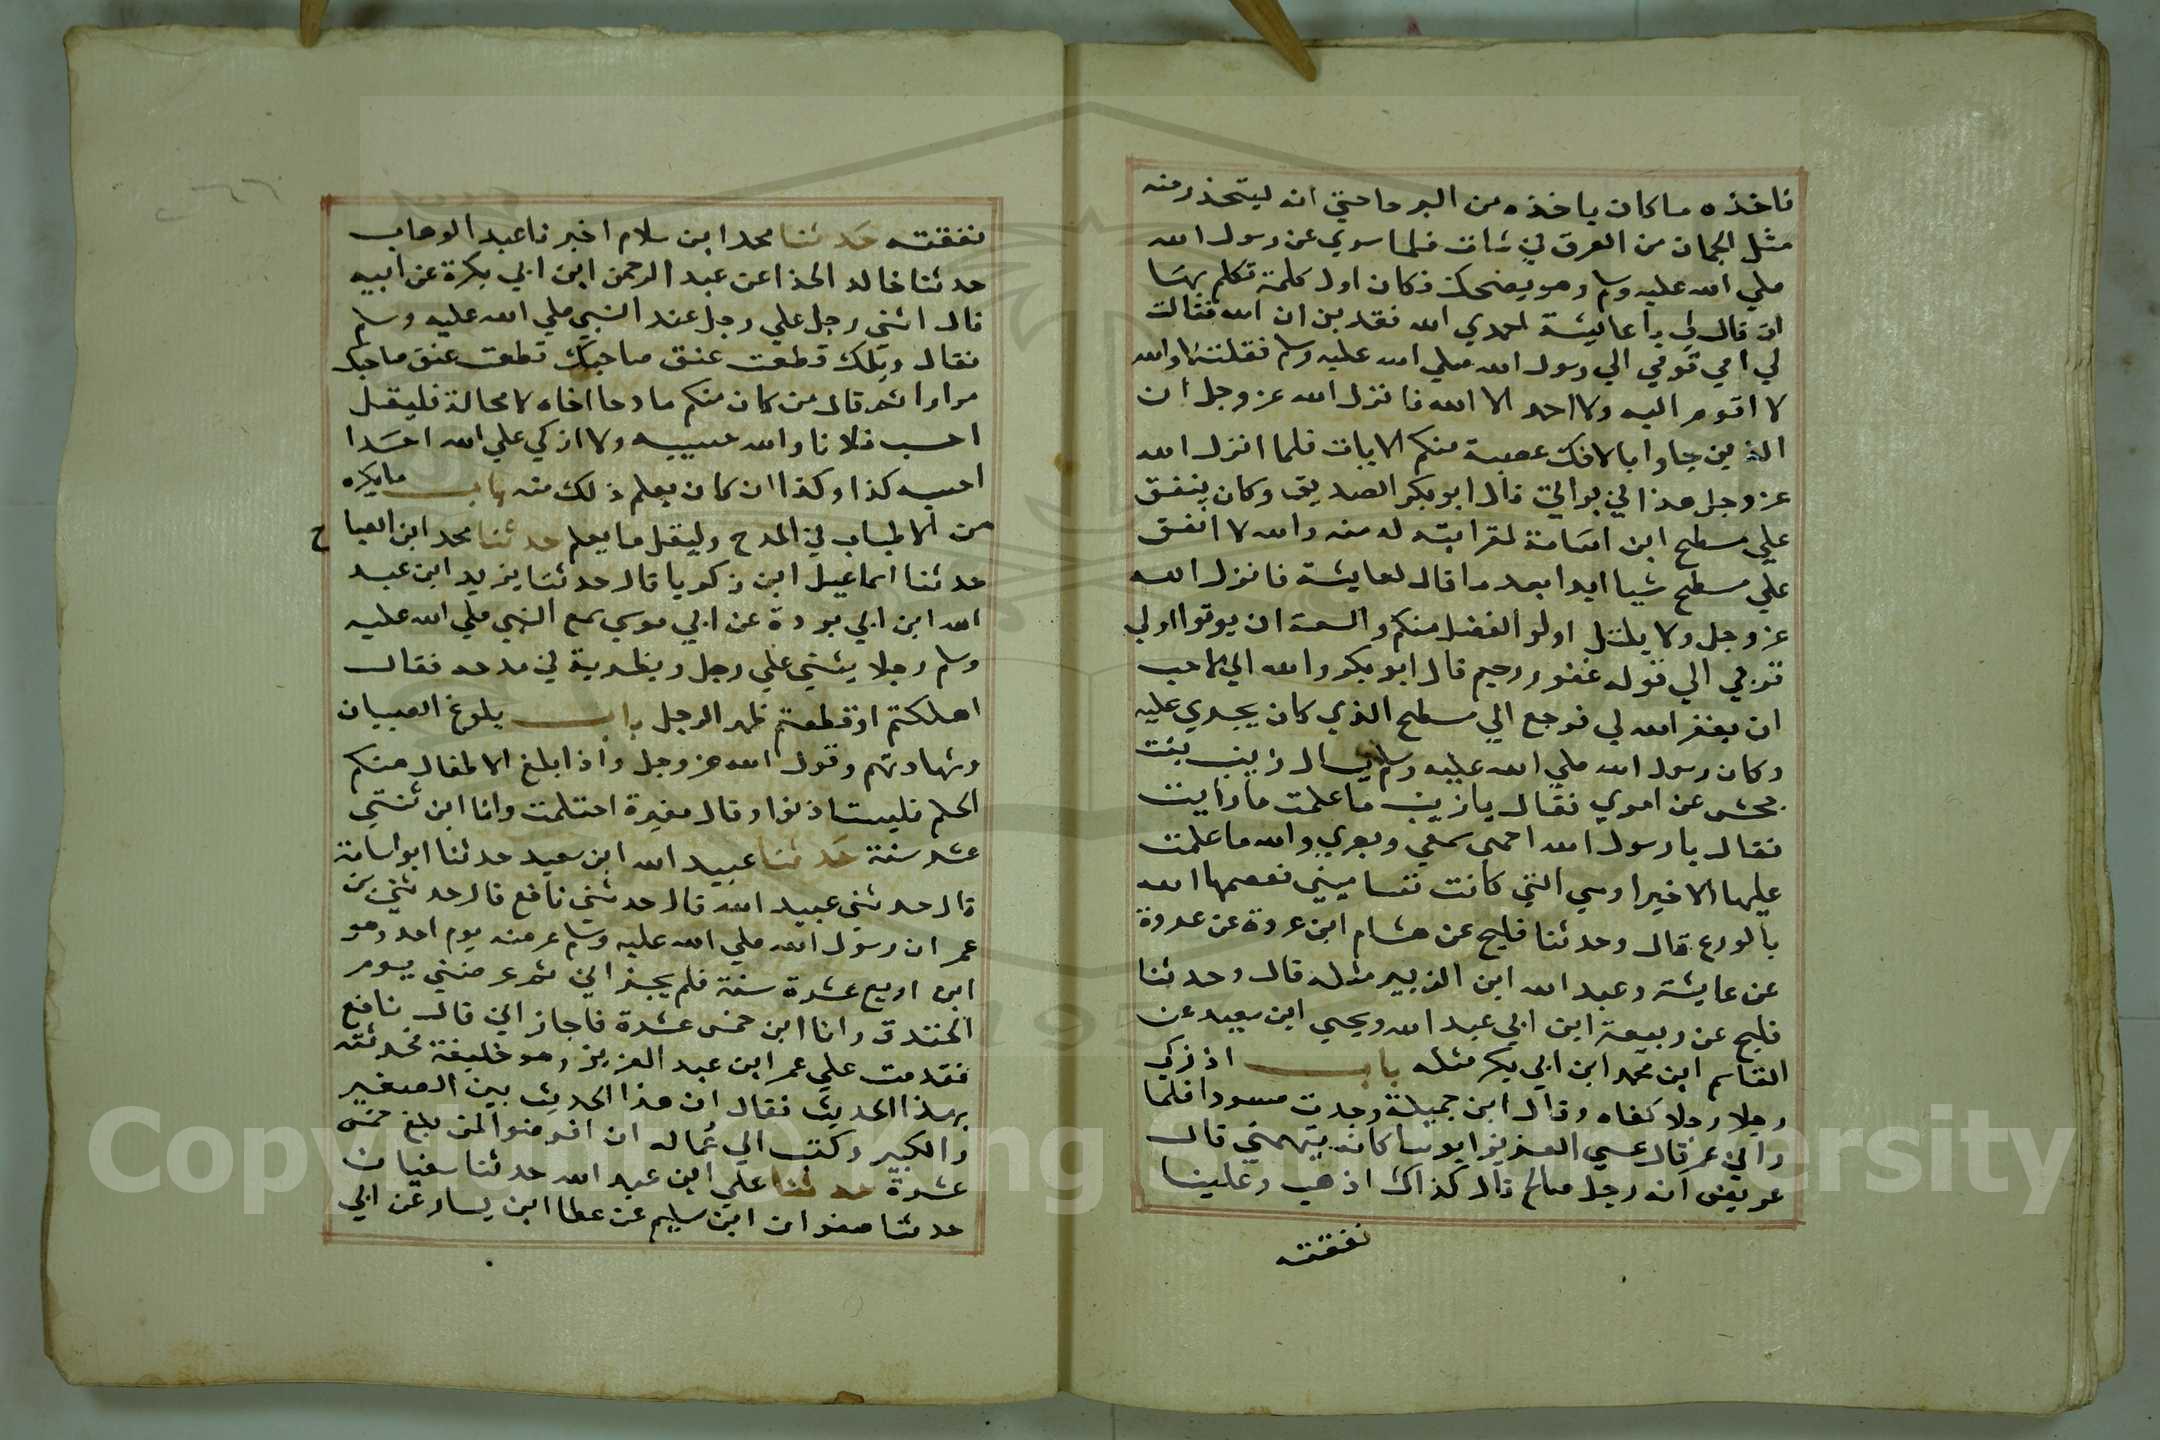 فاخذه ما كان ياخذه من البرحا حتي انه ليتحذر منه
مثل الجمان من العرق في شات فلما سري عن رسول الله
صلي الله عليه وسلم وهو يضحك فكان اول كلمة تكلم بها
ان قال لي يا عايشة احمدي الله فقد بن ان الله فقالت
لي امي قومي الي رسول الله صلي الله عليه وسلم فقلت لا والله
لا اقوم اليه ولا احمد الا الله فانزل الله عز وجل ان
الذين جاوا بالافك عصبة منكم الايات فلما انزل الله
عز وجل هذا في براتي قال ابو بكر الصديق وكان ينفق
علي مسطح ابن اثامة لقرابته له منه والله لا انفق
علي مسطح شيا ابدا بعد ما قال لعايشة فانزل الله
عز وجل ولا ياتل اولو الفضل منكم والسعة ان يوتوا اولي
قربي الي قوله غفور رحيم قال ابو بكر والله اني لاحب
ان يغفر الله لي فرجع الي مسطح الذي كان يجري عليه
وكان رسول الله صلي الله عليه وسلم يسال زاينب بنت
جحش عن امري فقال يا زينب ما علمت ما رايت
فقال يا رسول الله احمي سمعي وبصري والله ما علمت
عليها الا خيرا وهي التي كانت تساميني فعصمها الله
بالورع قال وحدثنا فليح عن هشام ابن عروة عن عروة
عن عايشة وعبد الله ابن الزبير مثله قال وحدثنا
فليح عن ربيعة ابن ابي عبد الله ويحيي ابن سعيد عن
القاسم ابن محمد ابن ابي بكر مثله باب اذا زكي
رجلا رجلا كفاه وقال ابن جميلة وجدت منبوذا فلما
راني عمر قال عسي الغوير ابوسا كانه يتهمني قال
عريفي انه رجل صالح قال كذاك اذهب وعلينا
نفقته
نفقته حدثنا محمد ابن سلام اخبرنا عبد الوهاب
حدثنا خالد الحذا عن عبد الرحمن ابن ابي بكرة عن ابيه
قال اثني رجل علي رجل عند النبي صلي الله عليه وسلم
فقال ويلك قطعت عنق صاحبك قطعت عنق صاحبك
مرارا ثم قال من كان منكم مادحا اخاه لا محالة فليقل
احسب فلانا والله حسيبه ولا ازكي علي الله احدا
احسبه كذا وكذا ان كان يعلم ذلك منه باب ما يكره
من الاطناب في المدح وليقل ما يعلم حدثنا محمد ابن الصبا
ح
حدثنا اسماعيل ابن زكريا قال حدثنا يزيد ابن عبد
الله ابن ابي بردة عن ابي موسي سمع النبي صلي الله عليه
وسلم رجلا يثني علي رجل ويطريه في مدحه فقال
اهلكتم او قطعتم ظهر الرجل باب بلوغ الصبيان
وشهادتهم وقول الله عز وجل واذا بلغ الاطفال منكم
الحلم فليستاذنوا وقال مغيرة احتلمت وانا ابن ثنتي
عشر سنة حدثنا عبيد الله ابن سعيد حدثنا ابو اسامة
قال حدثني عبيد الله قال حدثني نافع قال حدثني بن
عمر ان رسول الله صلي الله عليه وسلم عرضه يوم احد وهو
ابن اربع عشرة سنة فلم يجزاني ثم عرضني يوم
الخندق وانا ابن خمس عشرة فاجازاني قال نافع
فقدمت علي عمر ابن عبد العزيز وهو خليفة فحدثته
بهذا الحديث فقال ان هذا الحديث بين الصغير
والكبير وكتب الي عماله ان افرضوا لمن بلغ خمس
عشرة حدثنا علي ابن عبد الله حدثنا سفيان
حدثنا صفوان ابن سليم عن عطا ابن يسار عن ابي